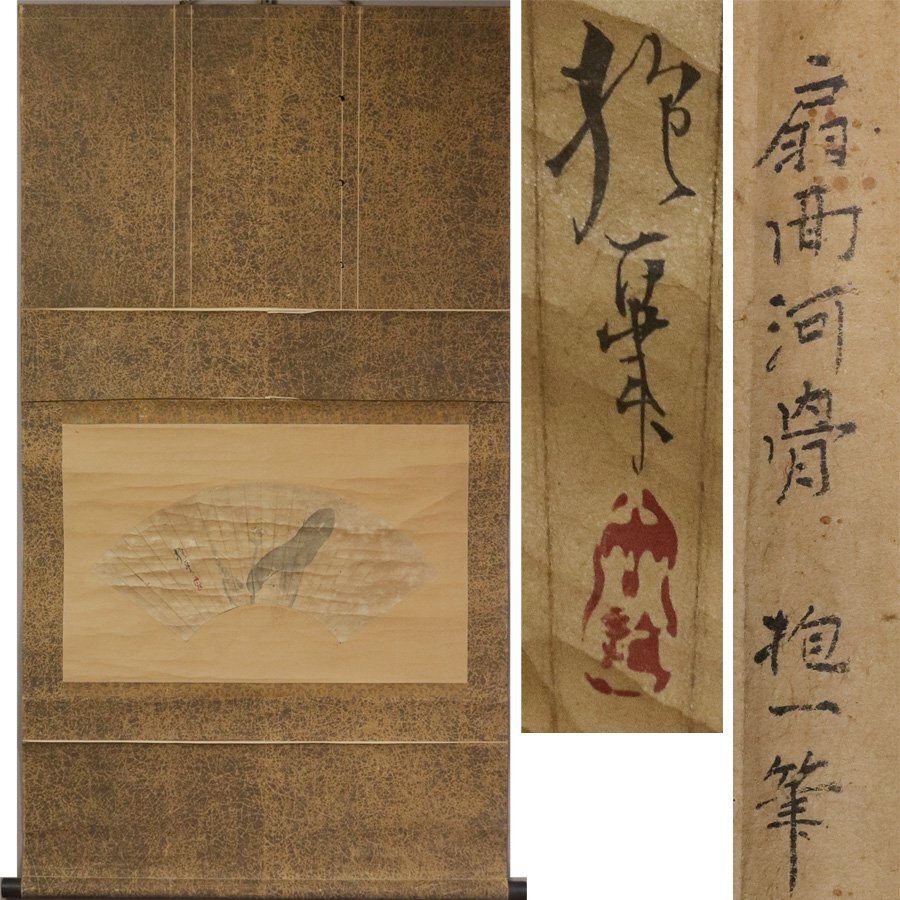 扇面河骨 抱一筆
抱一筆